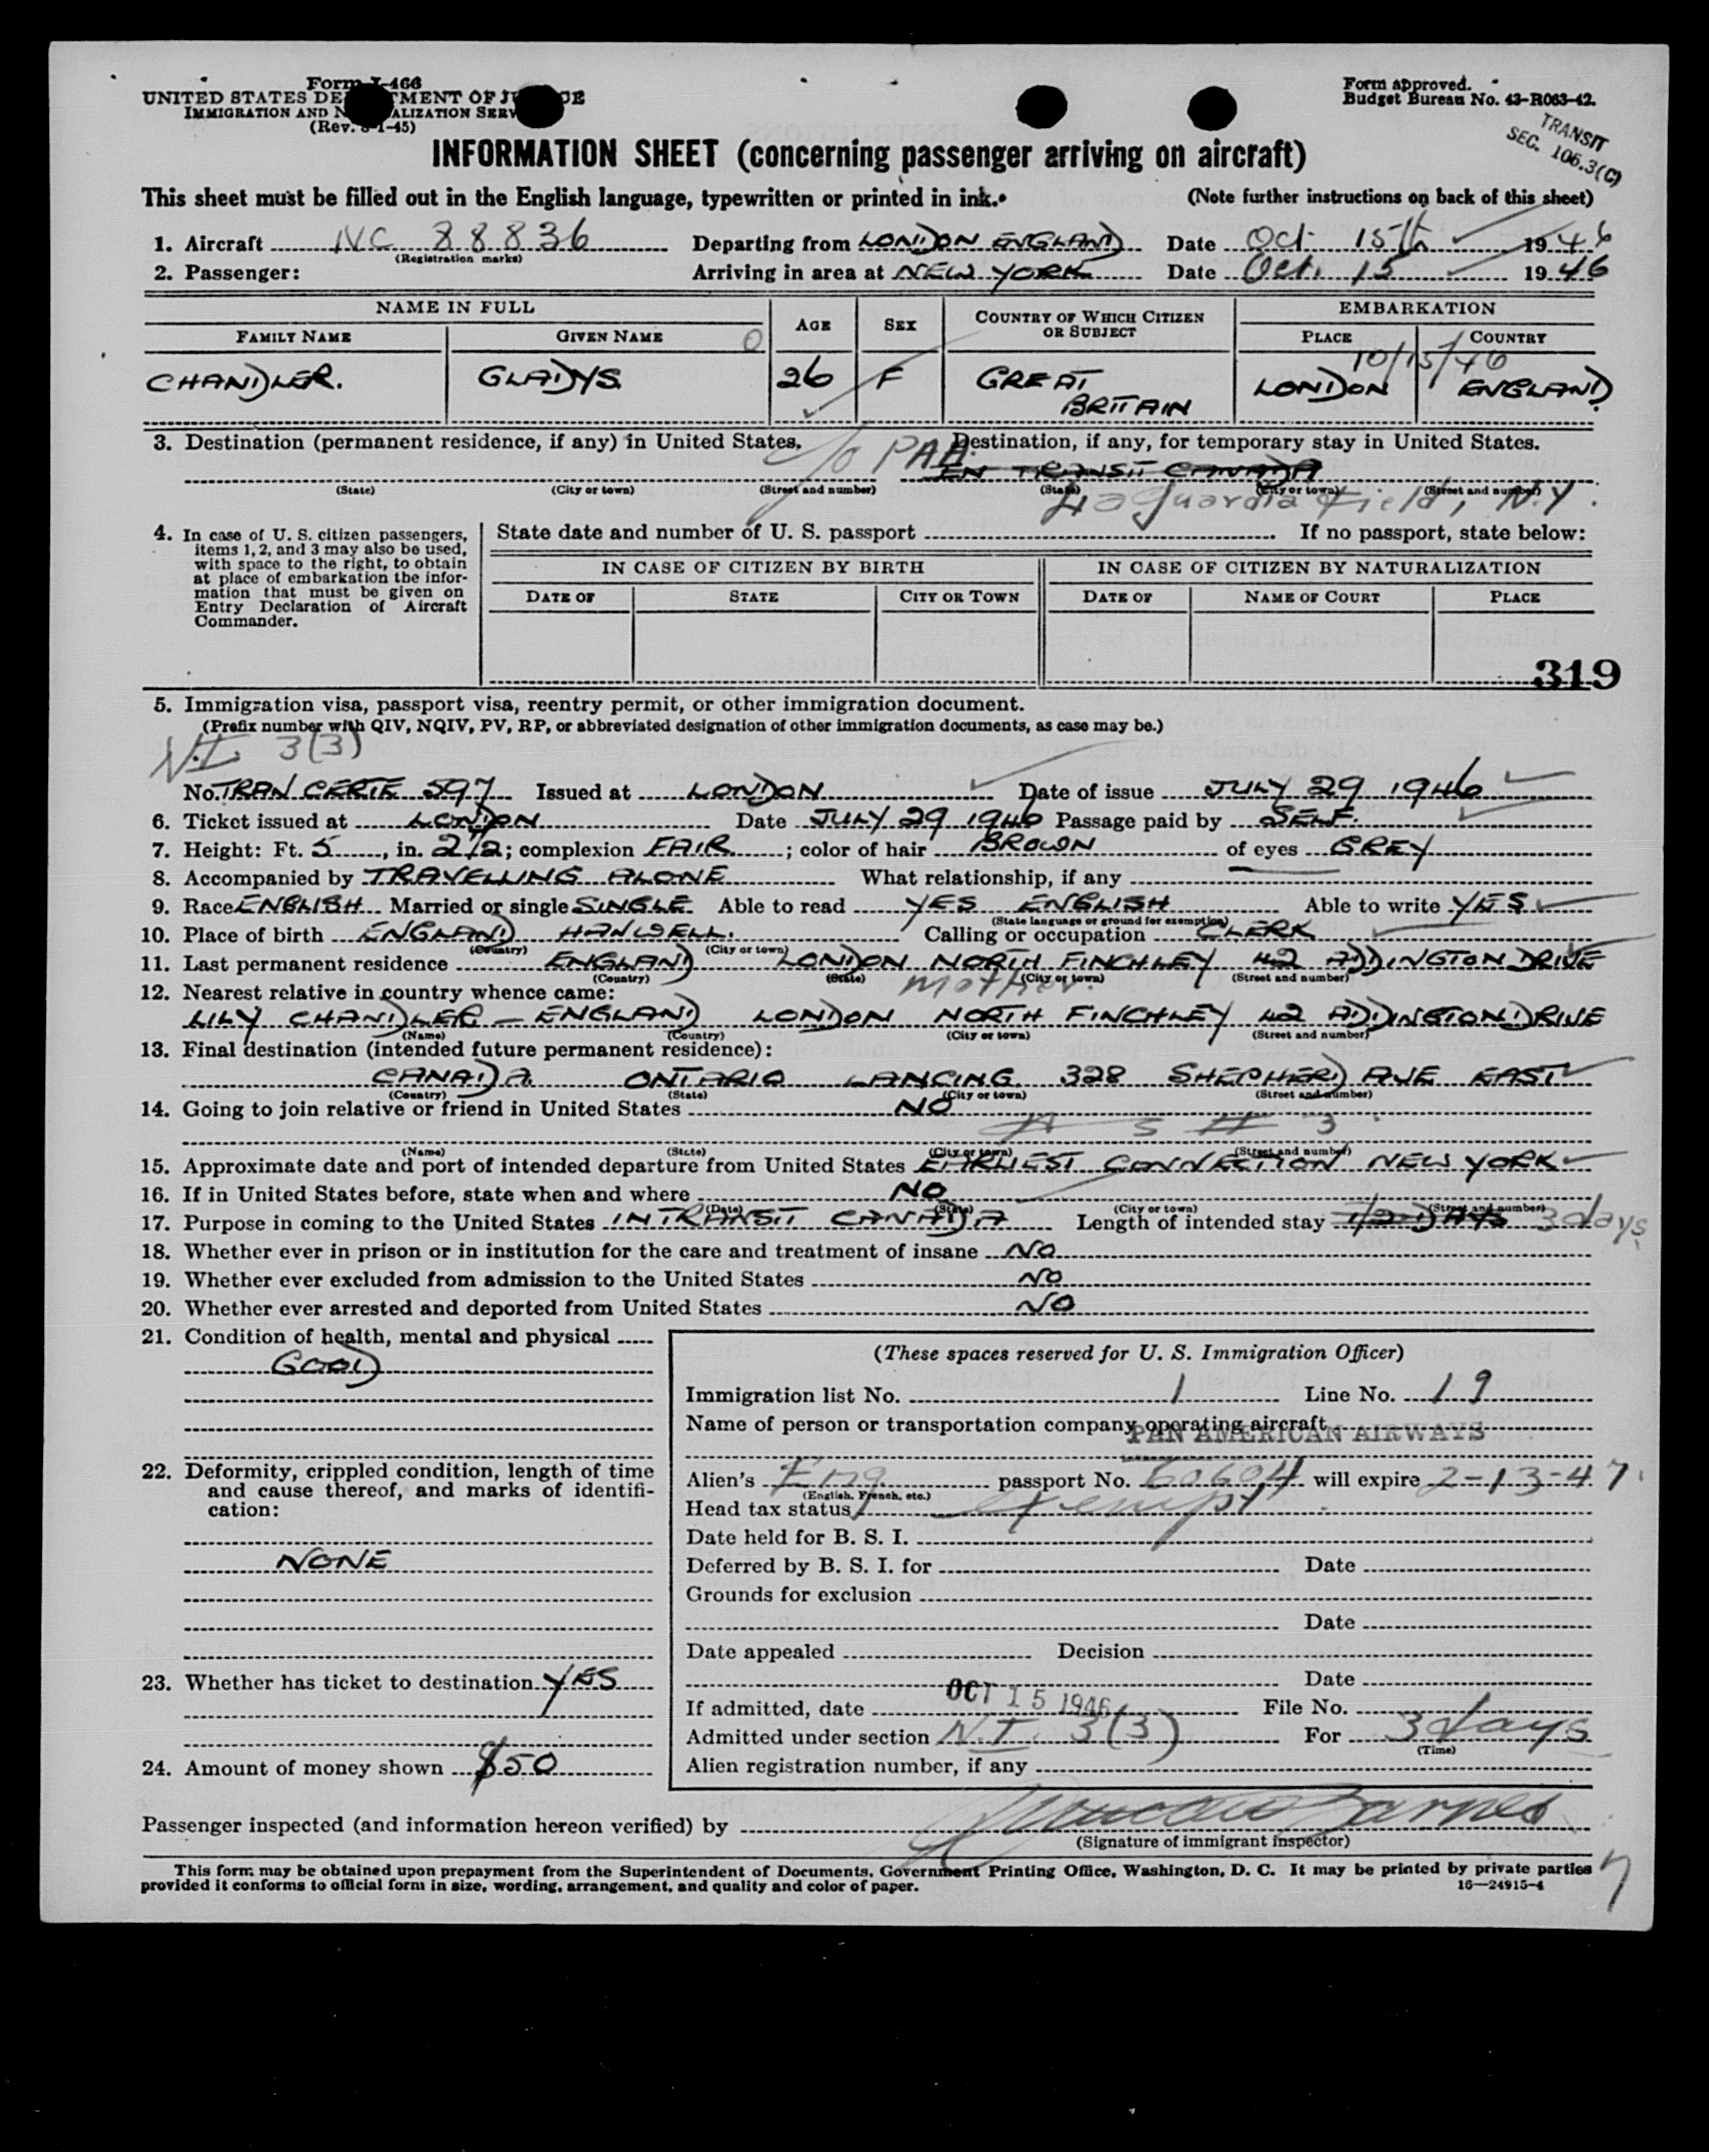 Form I-466
UNITED STATES DEPARTMENT OF JUSTICE
IMMIGRATION AND NATURALIZATION SERV
(Rev. 8-1-45)
Form approved.
Budget Bureau No. 43-R063-42.
TRANSIT
SEC. 106.3(C)
INFORMATION SHEET (concerning passenger arriving on aircraft)
This sheet must be filled out in the English language, typewritten or printed in ink. (Note further instructions on back of this sheet)
1. Aircraft NC 88836 Departing from LONDON ENGLAND Date Oct 15th 1946
(Registration marks)
2. Passenger: Arriving in area at NEW YORK Date Oct. 15 1946
NAME IN FULL AGE SEX COUNTRY OF WHICH CITIZEN OR SUBJECT EMBARKATION
FAMILY NAME GIVEN NAME PLACE COUNTRY
10/15/46
CHANDLER. GLADYS 26 F GREAT BRITAIN LONDON ENGLAND
3. Destination (permanent residence, if any) in United States. Destination, if any, for temporary stay in United States.
c/o PAA. EN TRANSIT CANADA
(State) (City or town) (Street and number) (State) (City or town) (Street and number)
LaGuardia Field, N.Y.
4. In case of U. S. citizen passengers, items 1, 2, and 3 may also be used, with space to the right, to obtain at place of embarkation the information that must be given on Entry Declaration of Aircraft Commander.
State date and number of U. S. passport If no passport, state below:
IN CASE OF CITIZEN BY BIRTH IN CASE OF CITIZEN BY NATURALIZATION
DATE OF STATE CITY OR TOWN DATE OF NAME OF COURT PLACE
319
5. Immigration visa, passport visa, reentry permit, or other immigration document.
(Prefix number with QIV, NQIV, PV, RP, or abbreviated designation of other immigration documents, as case may be.)
N.I. 3(3)
No. TRAN CERTE 597 Issued at LONDON Date of issue JULY 29 1946
6. Ticket issued at LONDON Date JULY 29 1946 Passage paid by SELF.
7. Height: Ft. 5, in. 2 1/2; complexion FAIR; color of hair BROWN of eyes GREY
8. Accompanied by TRAVELLING ALONE What relationship, if any
9. Race ENGLISH Married or single SINGLE Able to read YES ENGLISH Able to write YES
(State language or ground for exemption)
10. Place of birth ENGLAND HANWELL. Calling or occupation CLERK
(Country) (City or town)
11. Last permanent residence ENGLAND LONDON NORTH FINCHLEY 42 ADDINGTON DRIVE
(Country) (State) (City or town) (Street and number)
12. Nearest relative in country whence came: mother.
LILY CHANDLER - ENGLAND LONDON NORTH FINCHLEY 42 ADDINGTON DRIVE
(Name) (Country) (City or town) (Street and number)
13. Final destination (intended future permanent residence):
CANADA ONTARIO LANCING 328 SHEPHERD AVE EAST
(Country) (State) (City or town) (Street and number)
14. Going to join relative or friend in United States NO
(Name) (State) (City or town) (Street and number)
15. Approximate date and port of intended departure from United States EARLIEST CONNECTION NEW YORK
16. If in United States before, state when and where NO
(Date) (State) (City or town) (Street and number)
17. Purpose in coming to the United States IN TRANSIT CANADA Length of intended stay 1/2 DAYS 3 days
18. Whether ever in prison or in institution for the care and treatment of insane NO
19. Whether ever excluded from admission to the United States NO
20. Whether ever arrested and deported from United States NO
21. Condition of health, mental and physical
GOOD
22. Deformity, crippled condition, length of time and cause thereof, and marks of identification:
NONE
23. Whether has ticket to destination YES
24. Amount of money shown $50
(These spaces reserved for U. S. Immigration Officer)
Immigration list No. 1 Line No. 19
Name of person or transportation company operating aircraft
PAN AMERICAN AIRWAYS
Alien's Eng. passport No. 60604 will expire 2-13-47
(English, French, etc.)
Head tax status exempt
Date held for B. S. I.
Deferred by B. S. I. for Date
Grounds for exclusion
Date
Date appealed Decision
Date
If admitted, date OCT 15 1946 File No.
Admitted under section N.I. 3(3) For 3 days
(Time)
Alien registration number, if any
Passenger inspected (and information hereon verified) by
(Signature of immigrant inspector)
This form may be obtained upon prepayment from the Superintendent of Documents, Government Printing Office, Washington, D. C. It may be printed by private parties
provided it conforms to official form in size, wording, arrangement, and quality and color of paper.
16—24915-4